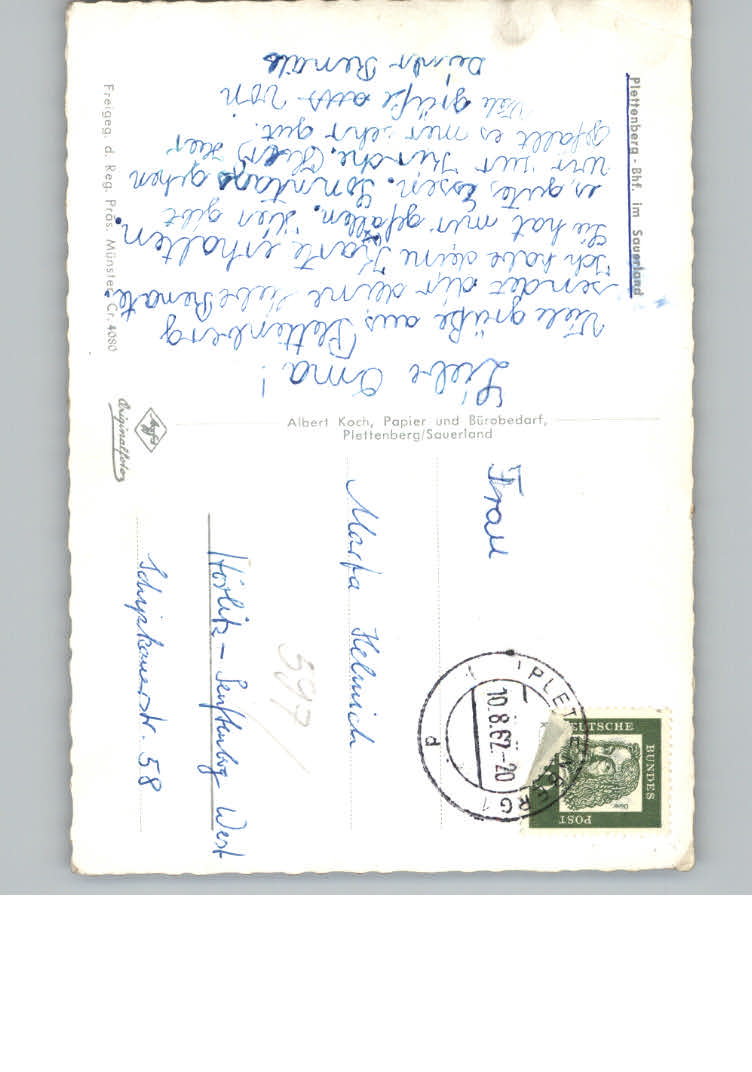 Plettenberg - Bhf. im Sauerland
Liebe Oma!
Viele grüße aus Plettenberg
sendet dir deine liebe Renate.
Ich habe deine Karte erhalten.
Sie hat mir gefallen. Hier gibt
es gutes Essen. Sonntags gehen
wir zur Kirche. Hier
gefällt es mir sehr gut.
Viele grüße von
Deiner Renate
Freigeg. d. Reg. Präs. Münster Cr. 4080
Albert Koch, Papier und Bürobedarf,
Plettenberg/Sauerland
Agfa
Originalfoto
Frau
Marta Helmich
Hörlitz - Senftenberg West
Schipkauerstr. 58
597
PLETTENBERG 1
10.8.62.-20
d
DEUTSCHE
BUNDES
POST
Dürer